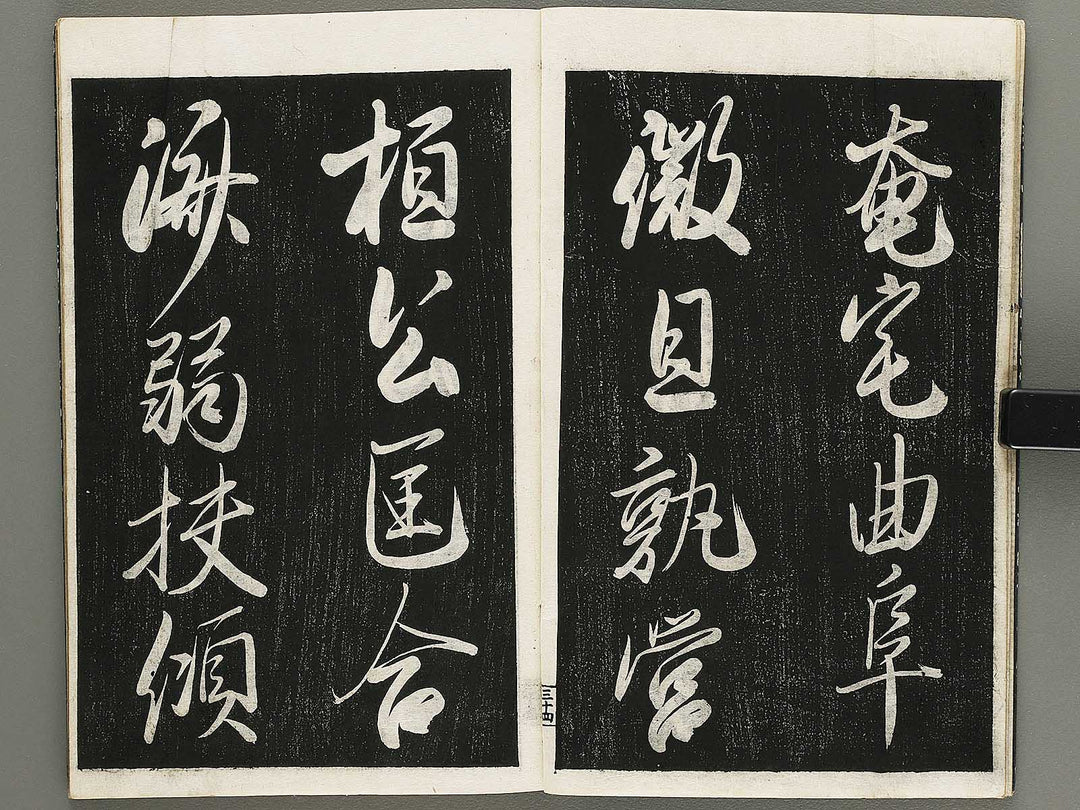 奄宅曲阜
微旦孰營
桓公匡合
濟弱扶傾
三十四